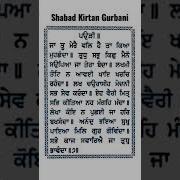 Shabad Kirtan Gurbani
ਪਉੜੀ॥
ਜਾ ਤੂ ਮੇਰੈ ਵਲਿ ਹੈ ਤਾ ਕਿਆ
ਮੁਹਛੰਦਾ॥ ਤੁਧੁ ਸਭੁ ਕਿਛੁ ਮੈਨੋ
ਸਉਪਿਆ ਜਾ ਤੇਰਾ ਬੰਦਾ॥ ਲਖਮੀ
ਤੋਟਿ ਨ ਆਵਈ ਖਾਇ ਖਰਚਿ
ਰਹੰਦਾ॥ ਲਖ ਚਉਰਾਸੀਹ ਮੇਦਨੀ
ਸਭ ਸੇਵ ਕਰੰਦਾ॥ ਏਹ ਵੈਰੀ ਮਿਤ੍ਰ
ਸਭਿ ਕੀਤਿਆ ਨਹ ਮੰਗਹਿ ਮੰਦਾ॥
ਲੇਖਾ ਕੋਇ ਨ ਪੁਛਈ ਜਾ ਹਰਿ
ਬਖਸੰਦਾ॥ ਅਨੰਦੁ ਭਇਆ ਸੁਖੁ
ਪਾਇਆ ਮਿਲਿ ਗੁਰ ਗੋਵਿੰਦਾ॥
ਸਭੇ ਕਾਜ ਸਵਾਰਿਐ ਜਾ ਤੁਧੁ
ਭਾਵੰਦਾ॥੭॥